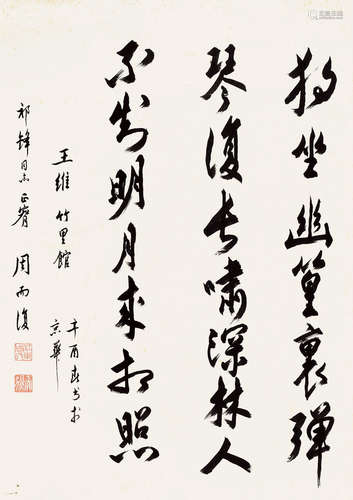 独坐幽篁裏弹
琴復长啸深林人
不知明月来相照
王維 竹里館
辛酉春书於
京華
祁鋒同志正腕
周而復